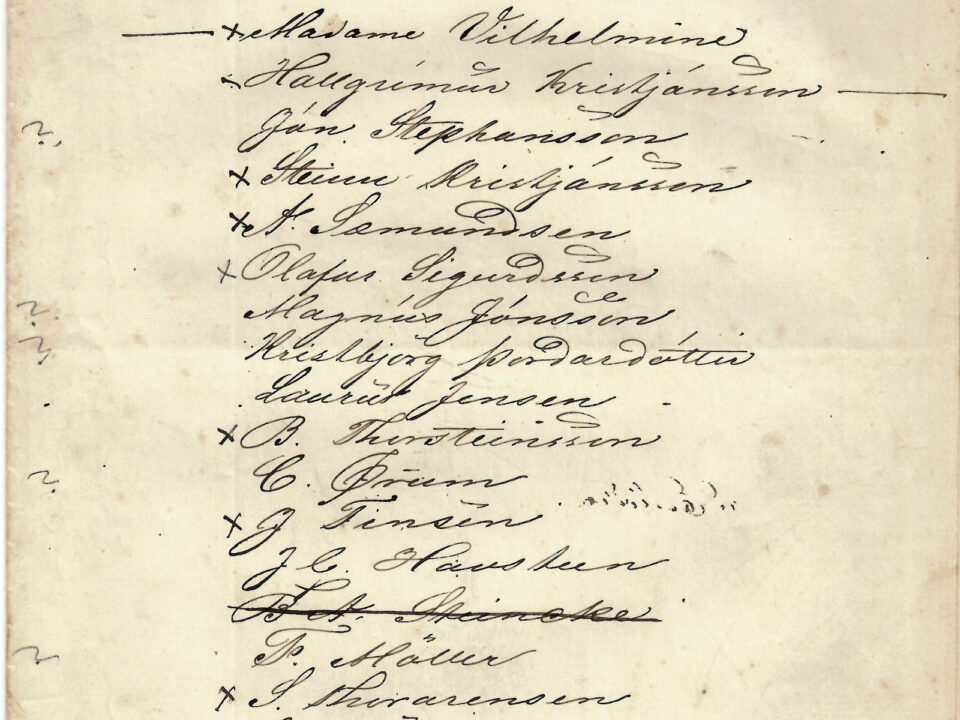 × Madame Vilhelmine
Hallgrímur Kristjánsson
?. Jón Stephansson
× Steinn Kristjánsson
× A. Sæmundsen
× Olafur Sigurdsson
?. Magnús Jónsson
? Kristbjörg Þordardóttir
Laurus Jensen
× B. Thorsteinsson
?. C. Ørum
× J Finsen
J C. Havsteen
B. A. Steincke
?. P. Möller
× S. Thorarensen